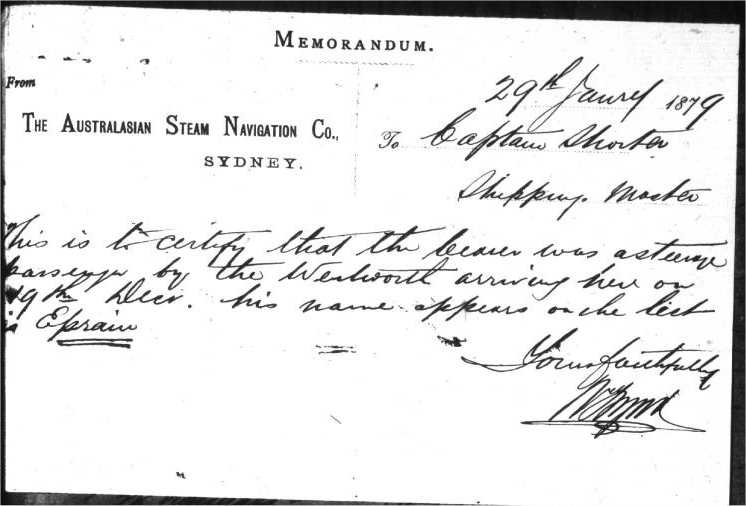 MEMORANDUM.
From
THE AUSTRALASIAN STEAM NAVIGATION CO.,
SYDNEY.
29th Janry 1879
To Captain Shorter
Shipping Master
This is to certify that the bearer was a steerage
passenger by the Wentworth arriving here on
19th Decr. his name appears on the list
is Eprain
Yours faithfully